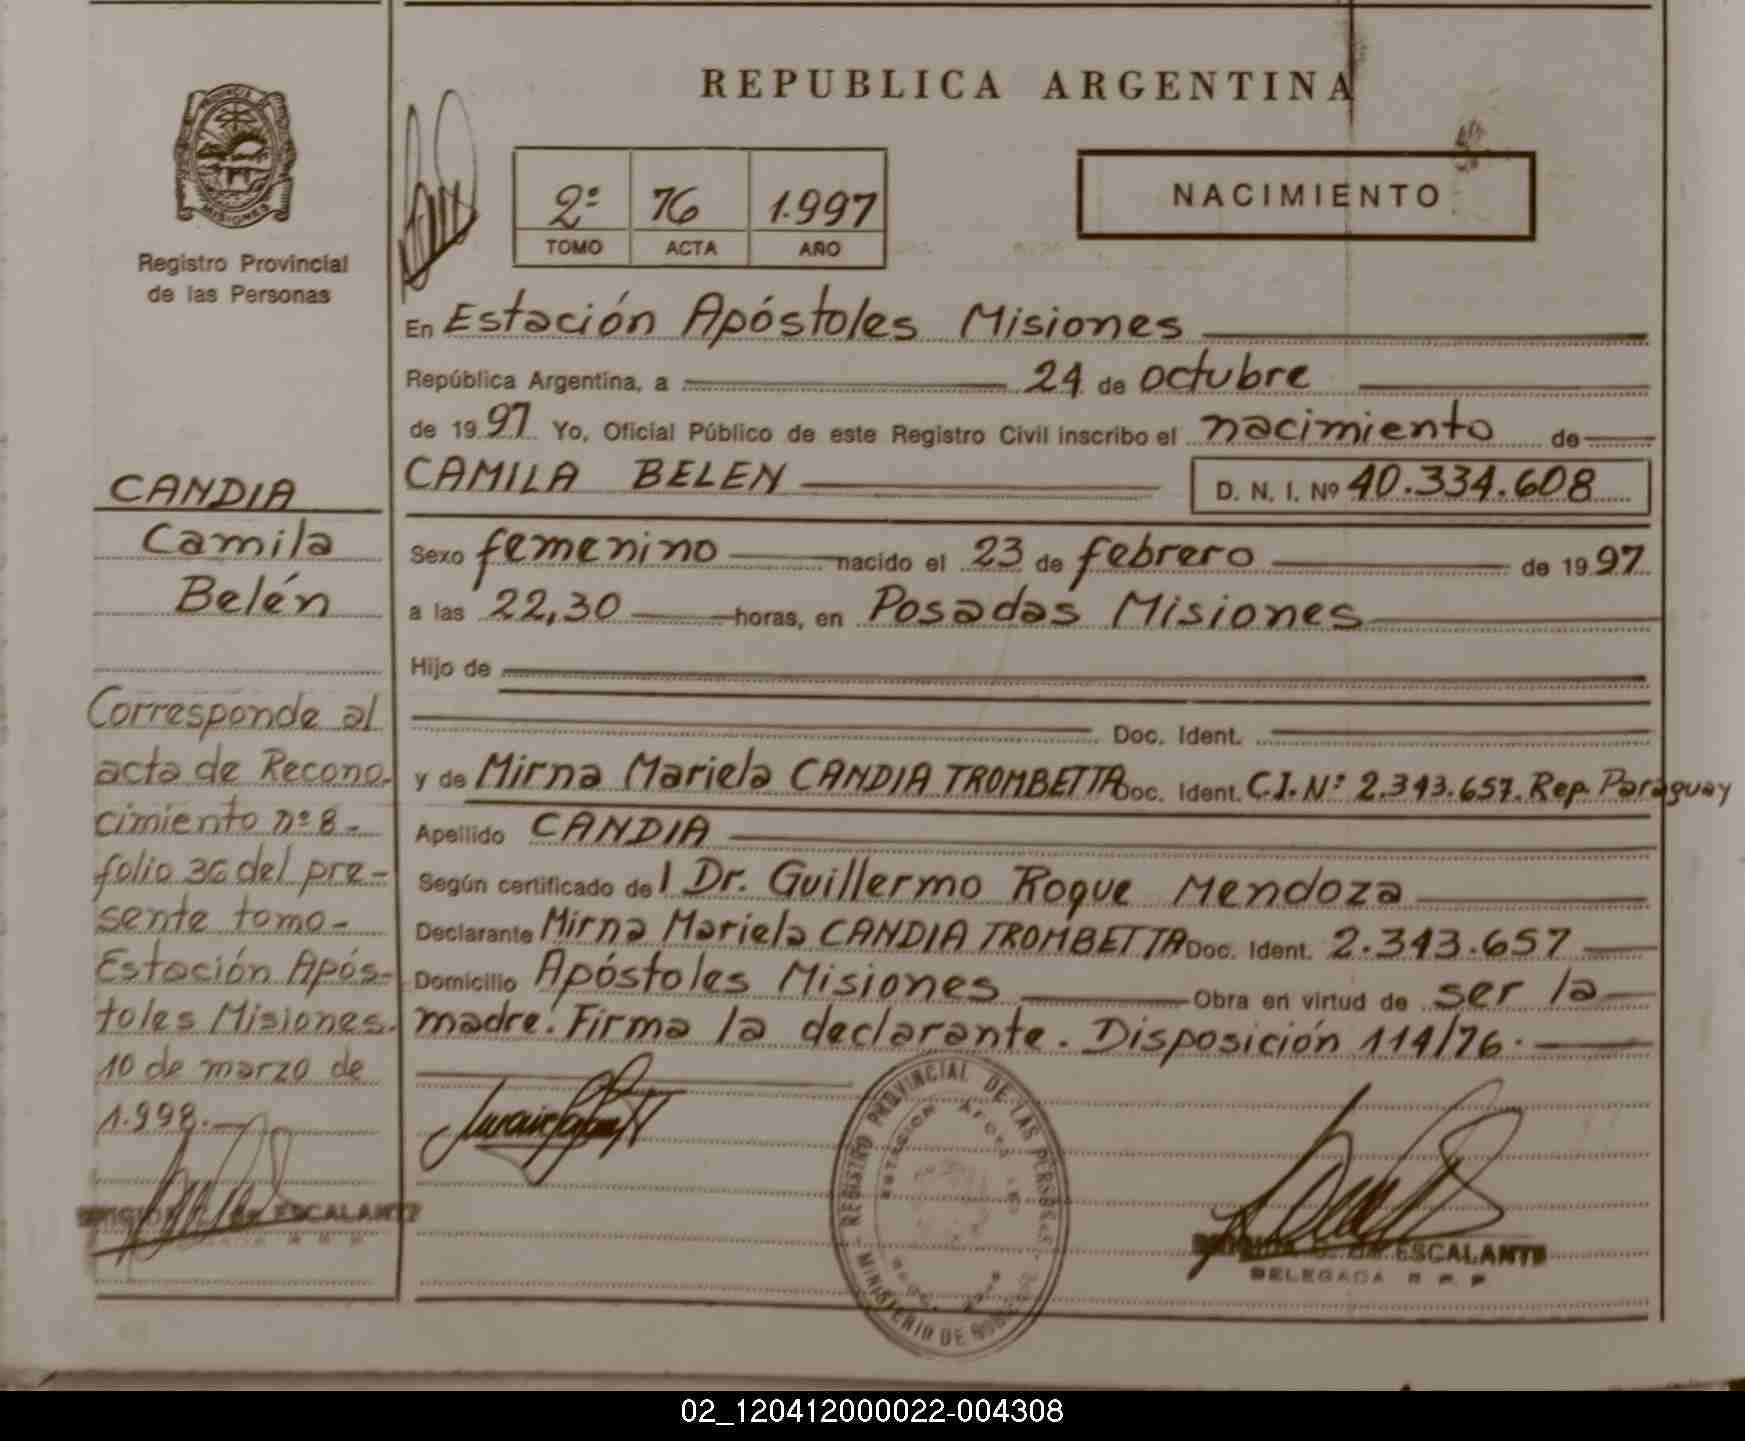 REPUBLICA ARGENTINA
PROVINCIA DE
MISIONES
Registro Provincial
de las Personas
2º 76 1.997
TOMO ACTA AÑO
NACIMIENTO
En Estación Apóstoles Misiones
República Argentina, a 24 de octubre
de 1997 Yo, Oficial Público de este Registro Civil inscribo el nacimiento de
CAMILA BELEN D. N. I. Nº 40.334.608
Sexo femenino nacido el 23 de febrero de 1997
a las 22,30 horas, en Posadas Misiones
Hijo de
Doc. Ident.
y de Mirna Mariela CANDIA TROMBETTA Doc. Ident. C.I. Nº 2.343.657. Rep. Paraguay
Apellido CANDIA
Según certificado del Dr. Guillermo Roque Mendoza
Declarante Mirna Mariela CANDIA TROMBETTA Doc. Ident. 2.343.657
Domicilio Apóstoles Misiones Obra en virtud de ser la
madre. Firma la declarante. Disposición 114/76.
CANDIA
Camila
Belén
Corresponde al
acta de Recono-
cimiento nº 8-
folio 36 del pre-
sente tomo-
Estación Após-
toles Misiones.
10 de marzo de
1.998.-
de ESCALANTE
REGISTRO PROVINCIAL DE LAS PERSONAS
MINISTERIO DE
DE ESCALANTE
DELEGADA R R P
02_120412000022-004308